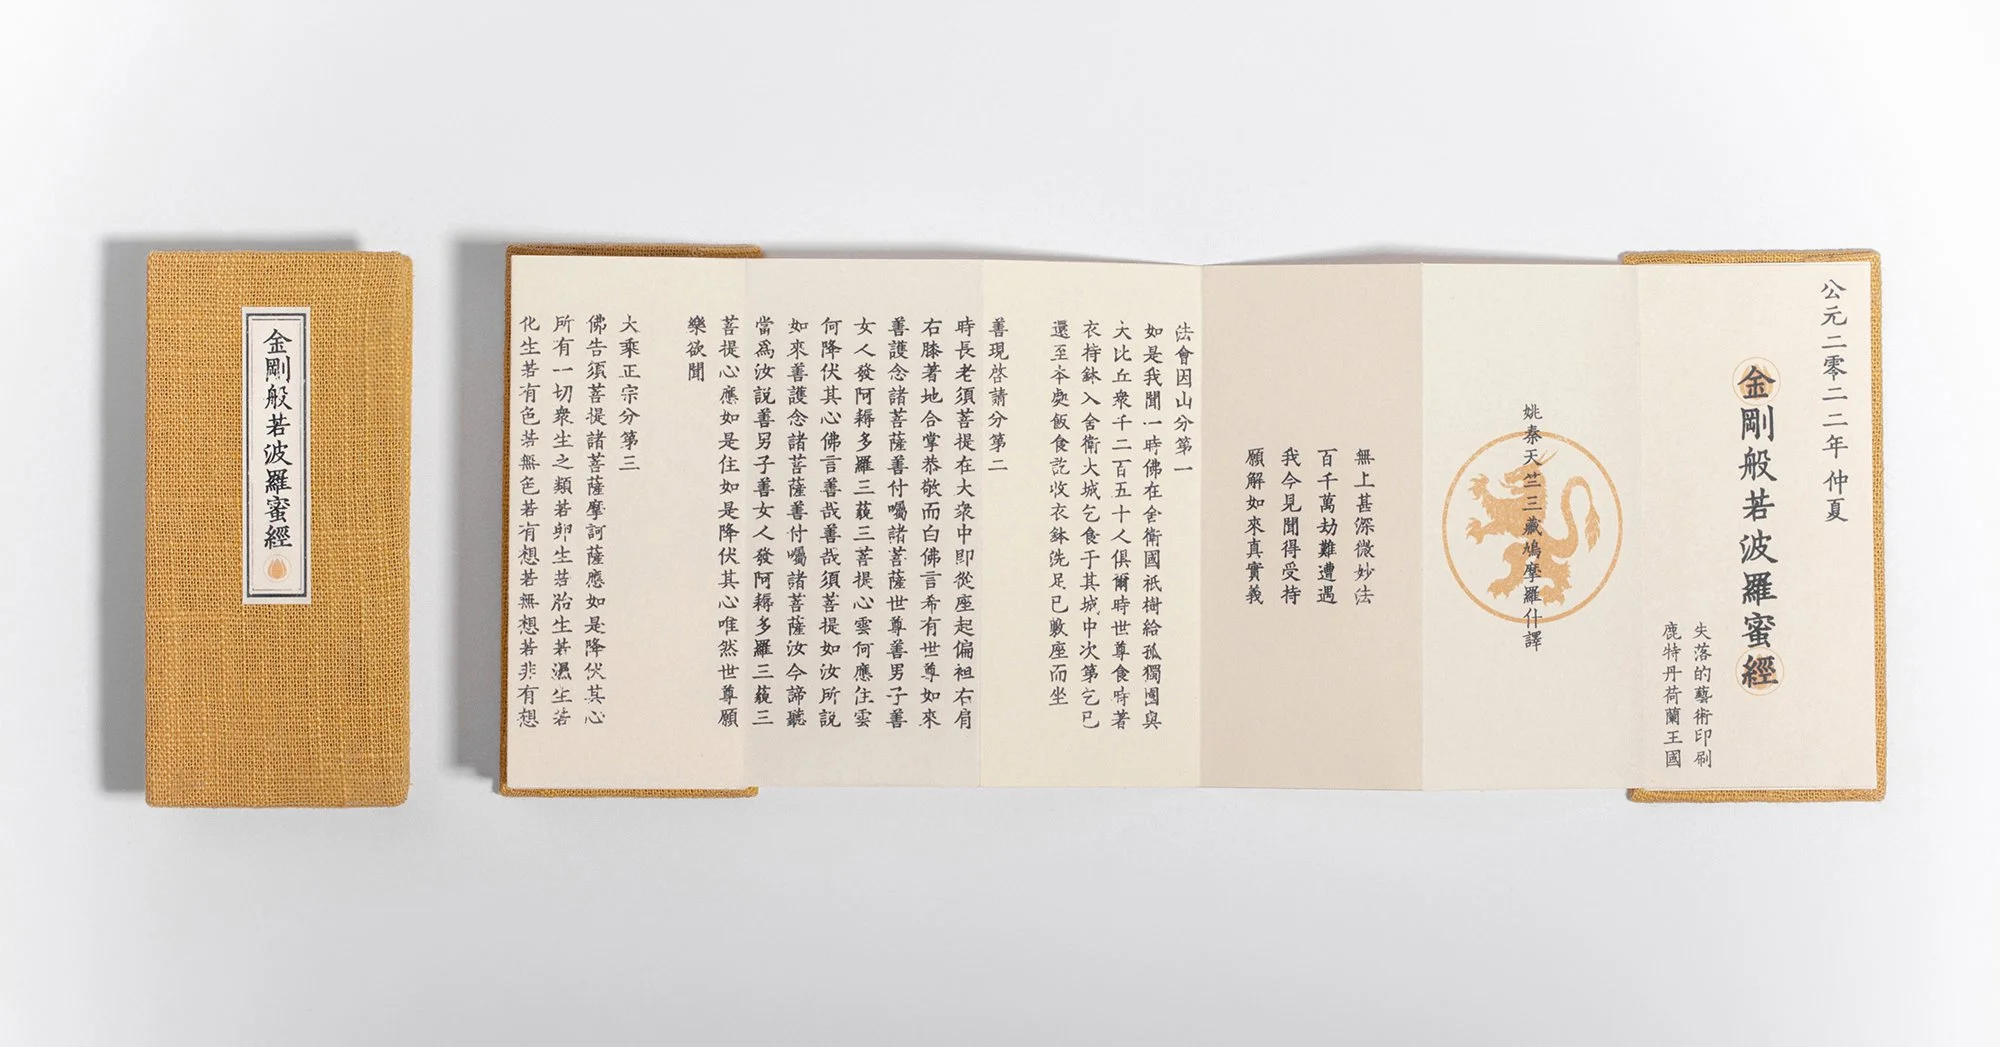 金剛般若波羅蜜經
公元二零二二年仲夏
金剛般若波羅蜜經
失落的藝術印刷
鹿特丹荷蘭王國
姚秦天竺三藏鳩摩羅什譯
無上甚深微妙法
百千萬劫難遭遇
我今見聞得受持
願解如來真實義
法會因山分第一
如是我聞一時佛在舍衛國祇樹給孤獨園與
大比丘衆千二百五十人俱爾時世尊食時著
衣持鉢入舍衛大城乞食于其城中次第乞已
還至本處飯食訖收衣鉢洗足已敷座而坐
善現啓請分第二
時長老須菩提在大衆中即從座起偏袒右肩
右膝著地合掌恭敬而白佛言希有世尊如來
善護念諸菩薩善付囑諸菩薩世尊善男子善
女人發阿耨多羅三藐三菩提心雲何應住雲
何降伏其心佛言善哉善哉須菩提如汝所說
如來善護念諸菩薩善付囑諸菩薩汝今諦聽
當爲汝說善男子善女人發阿耨多羅三藐三
菩提心應如是住如是降伏其心唯然世尊願
樂欲聞
大乘正宗分第三
佛告須菩提諸菩薩摩訶薩應如是降伏其心
所有一切衆生之類若卵生若胎生若濕生若
化生若有色若無色若有想若無想若非有想